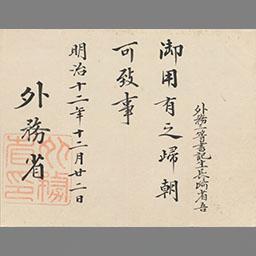 外務二等書記生長崎省吾
御用有之歸朝
可致事
明治十二年十二月廿二日
外務省
外務
省印